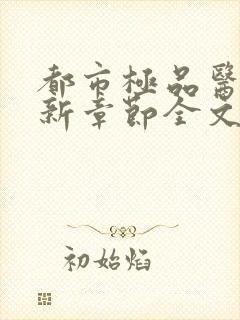 都市極品醫
新章節全文
初始焰